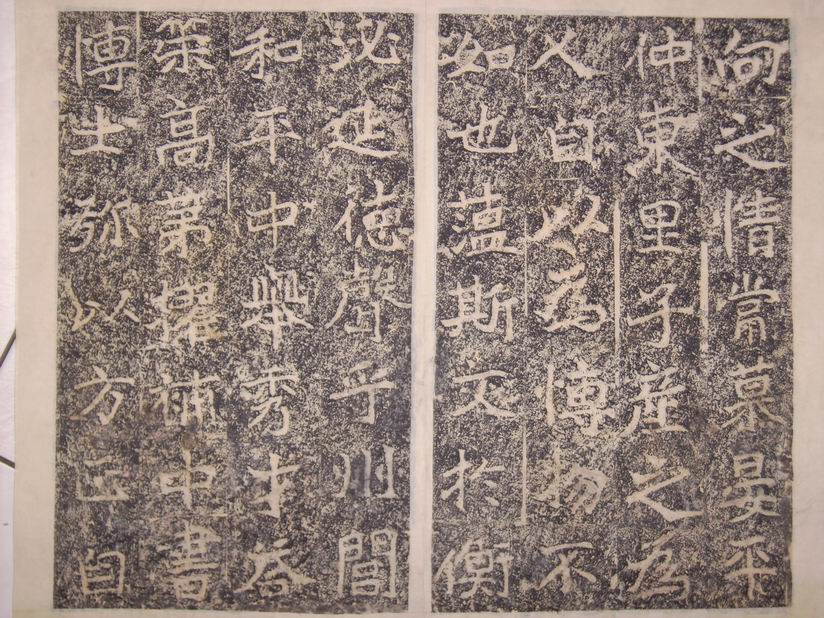 向之情常慕晏平
仲東里子産之為
人自以為愽物不
如也藴斯文於衡
泌延德聲乎州閭
和平中舉秀才荅
策高苐擢補中書
愽士弥以方正自